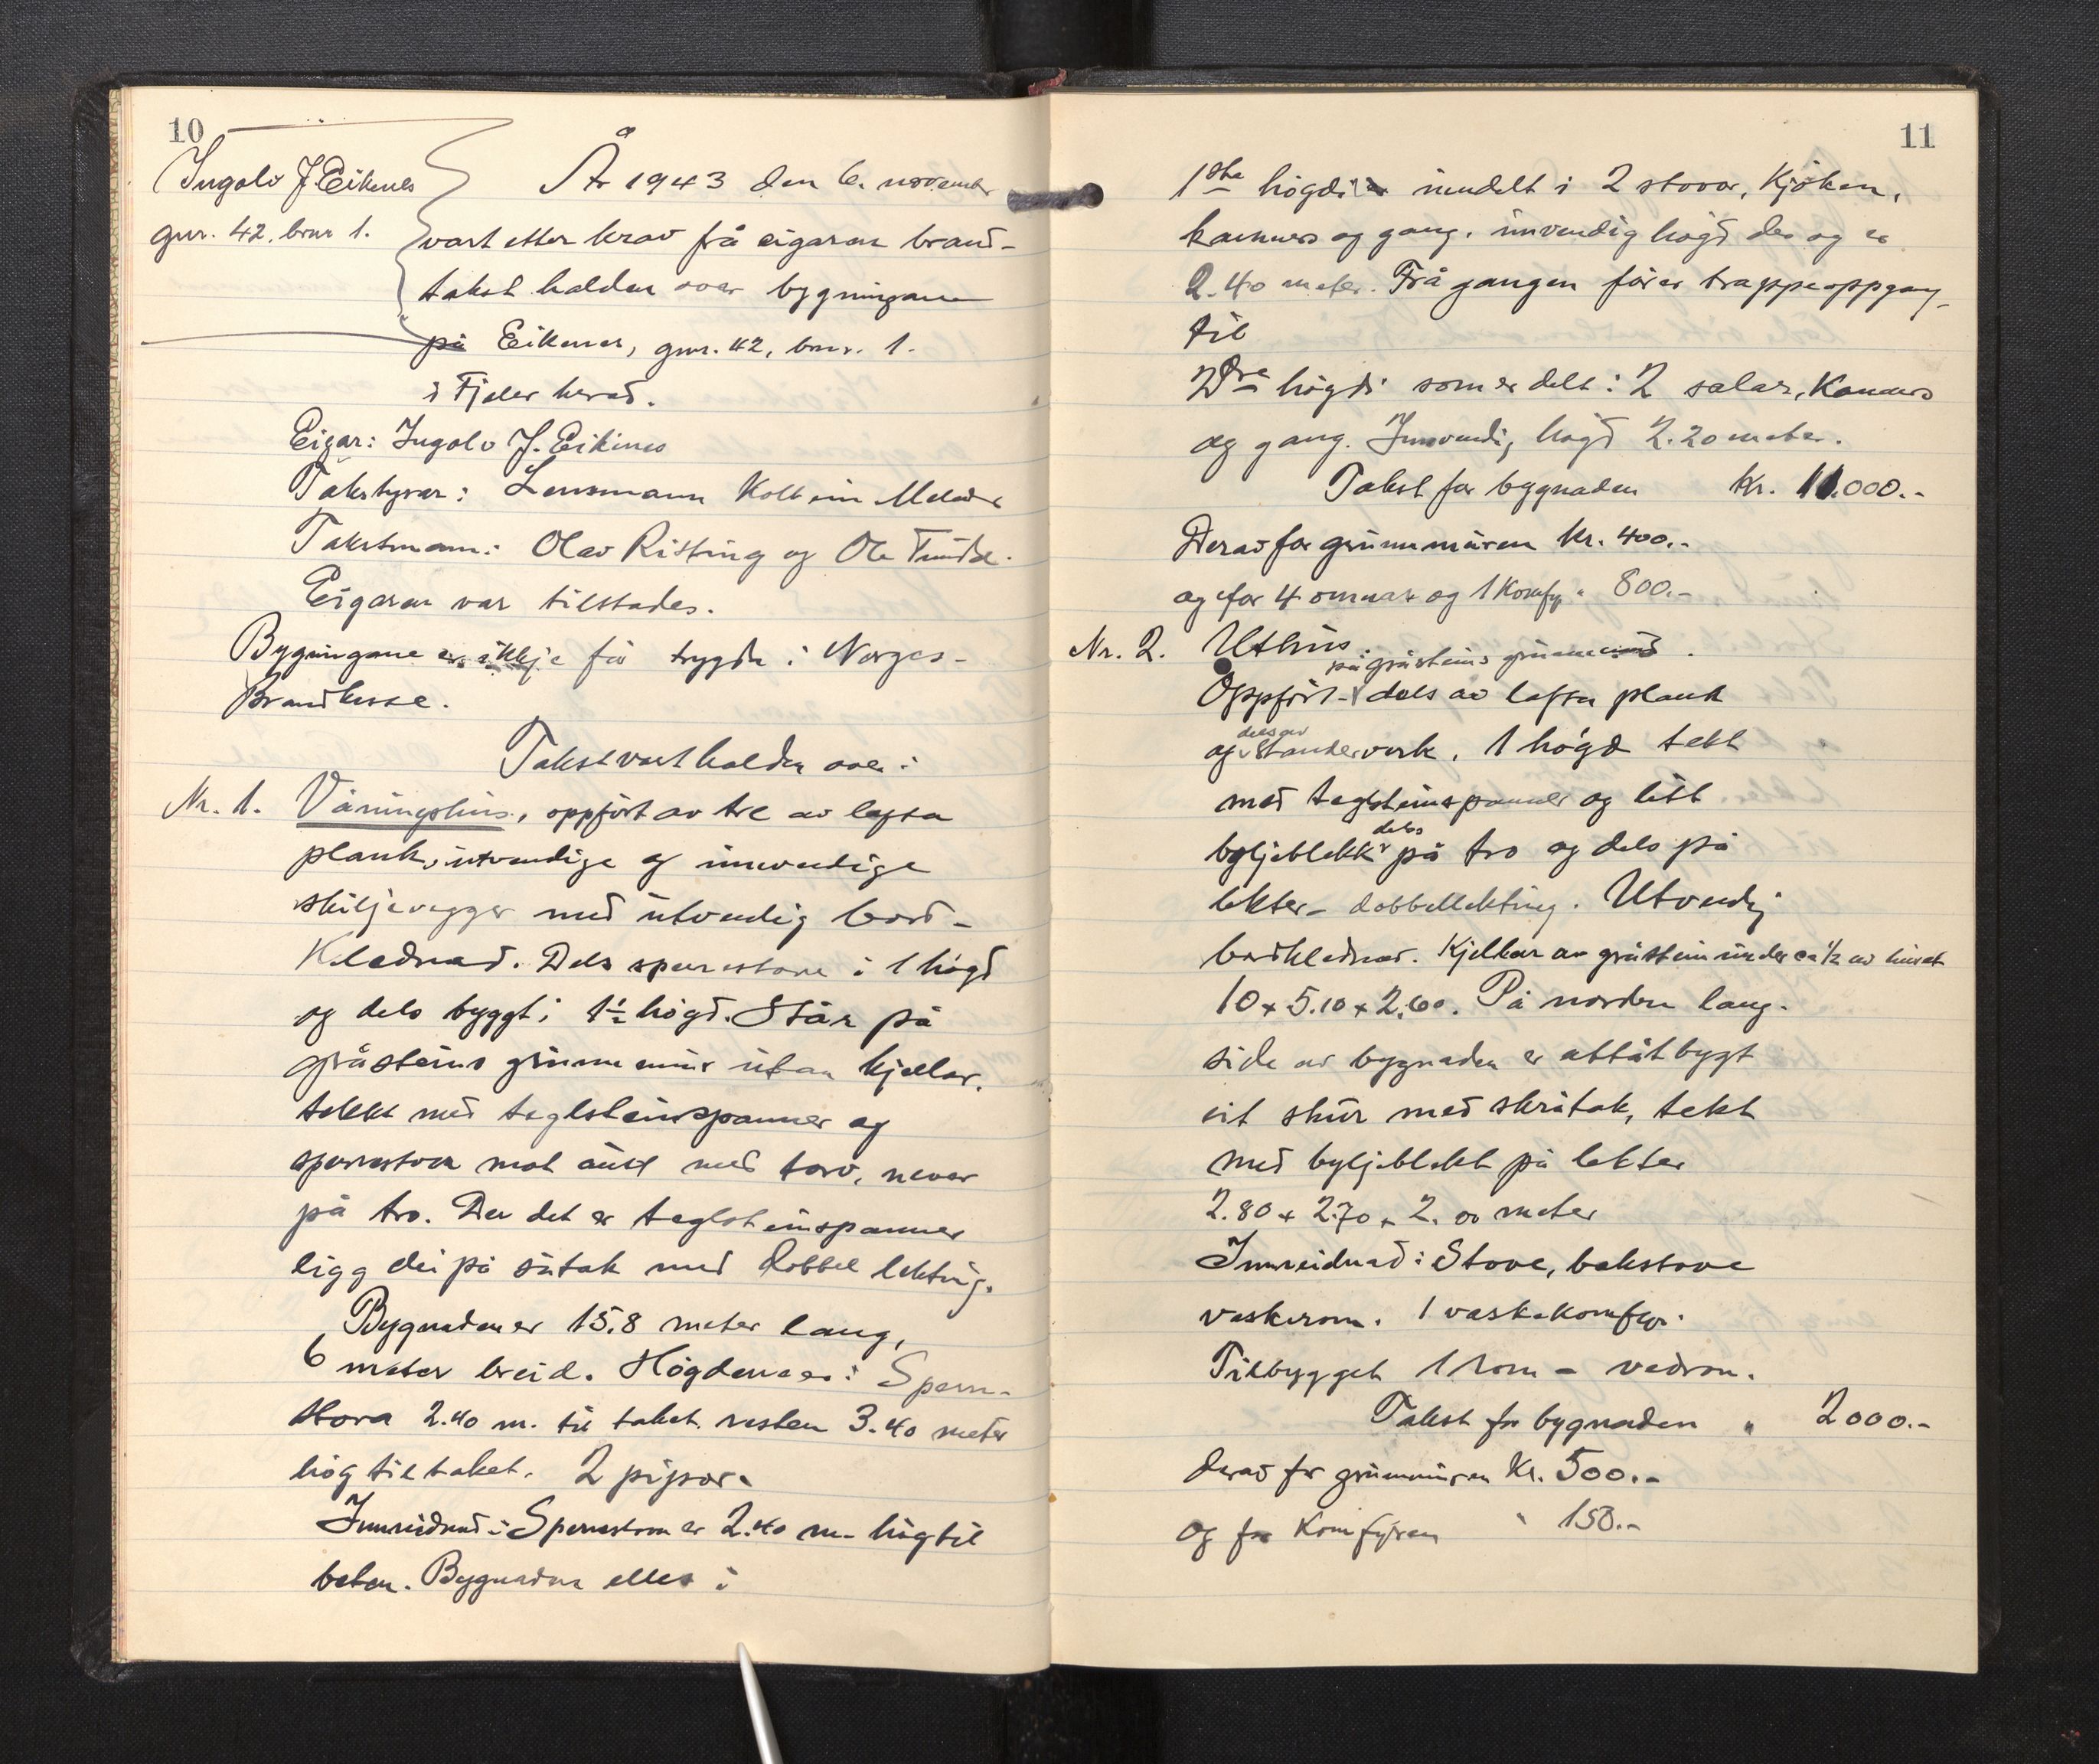 10
Ingolv J. Eikenes
gnr. 42, bnr 1.
År 1943 den 6. november
vart etter krav frå eigaren brand-
takst halden over bygningane
på Eikenes, gnr. 42, bnr. 1.
i Fjaler herad.
Eigar: Ingolv J. Eikenes
Takstyrar: Lensmann Kolbein
Takstmenn: Olav Risting og Ole
Eigaren var tilstades.
Bygningane er ikkje før trygda i Norges-
Brandkasse.
Takst vart halden over:
Nr. 1. Våningshus, oppført av tre av lafta
plank, utvendige og innvendige
skiljevegger med utvendig bord-
Klednad. Dels sperrestove i 1 høgd
og dels byggt i 1½ høgd. Står på
gråsteins grunnmur utan kjellar.
tekkt med teglsteinspanner og
sperrestova mot aust med torv, never
på tro. Der det er teglsteinspanner
ligg dei på sutak med dobbel lekting.
Bygnaden er 15.8 meter lang,
6 meter breid. Høgdene er: Sperre-
stova 2.40 m. til taket resten 3.40 meter
høg til taket. 2 pipor.
Innreidnad: Sperrestova er 2.40 m. høg til
beten. Bygnaden elles i
11
1ste høgdi er inndelt i 2 stovor, Kjøken,
kammers og gang. innvendig høgd der og er
2.40 meter. Frå gangen fører trappeoppgang
til
2dre høgdi som er delt i 2 salar, Kammers
og gang. Innvendig høgd 2.20 meter.
Takst for bygnaden Kr. 11.000.-
Derav for grunnmuren Kr. 400.-
og for 4 omnar og 1 Komfyr " 800.-
Nr. 2. Uthus
på gråsteins grunnmur.
Oppført - dels av lafta plank
dels av
og standerverk. 1 høgd tekt
med teglsteinspanner og litt
dels
bylgjeblekk på tro og dels på
lekter - dobbellekting. Utvendig
bordklednad. Kjellar av gråstein under ca ½ av huset
10 x 5.10 x 2.60. På nordre lang-
side av bygnaden er attåtbygt
eit skur med skråtak, tekt
med bylgjeblekk på lekter
2.80 x 2.70 x 2.00 meter
Innreidnad: Stove, bakstove
vaskerom. 1 vaskekomfyr.
Tilbygget 1 rom - vedrom.
Takst for bygnaden " 2000.-
derav for grunnmuren Kr. 500.-
og for Komfyren " 150.-